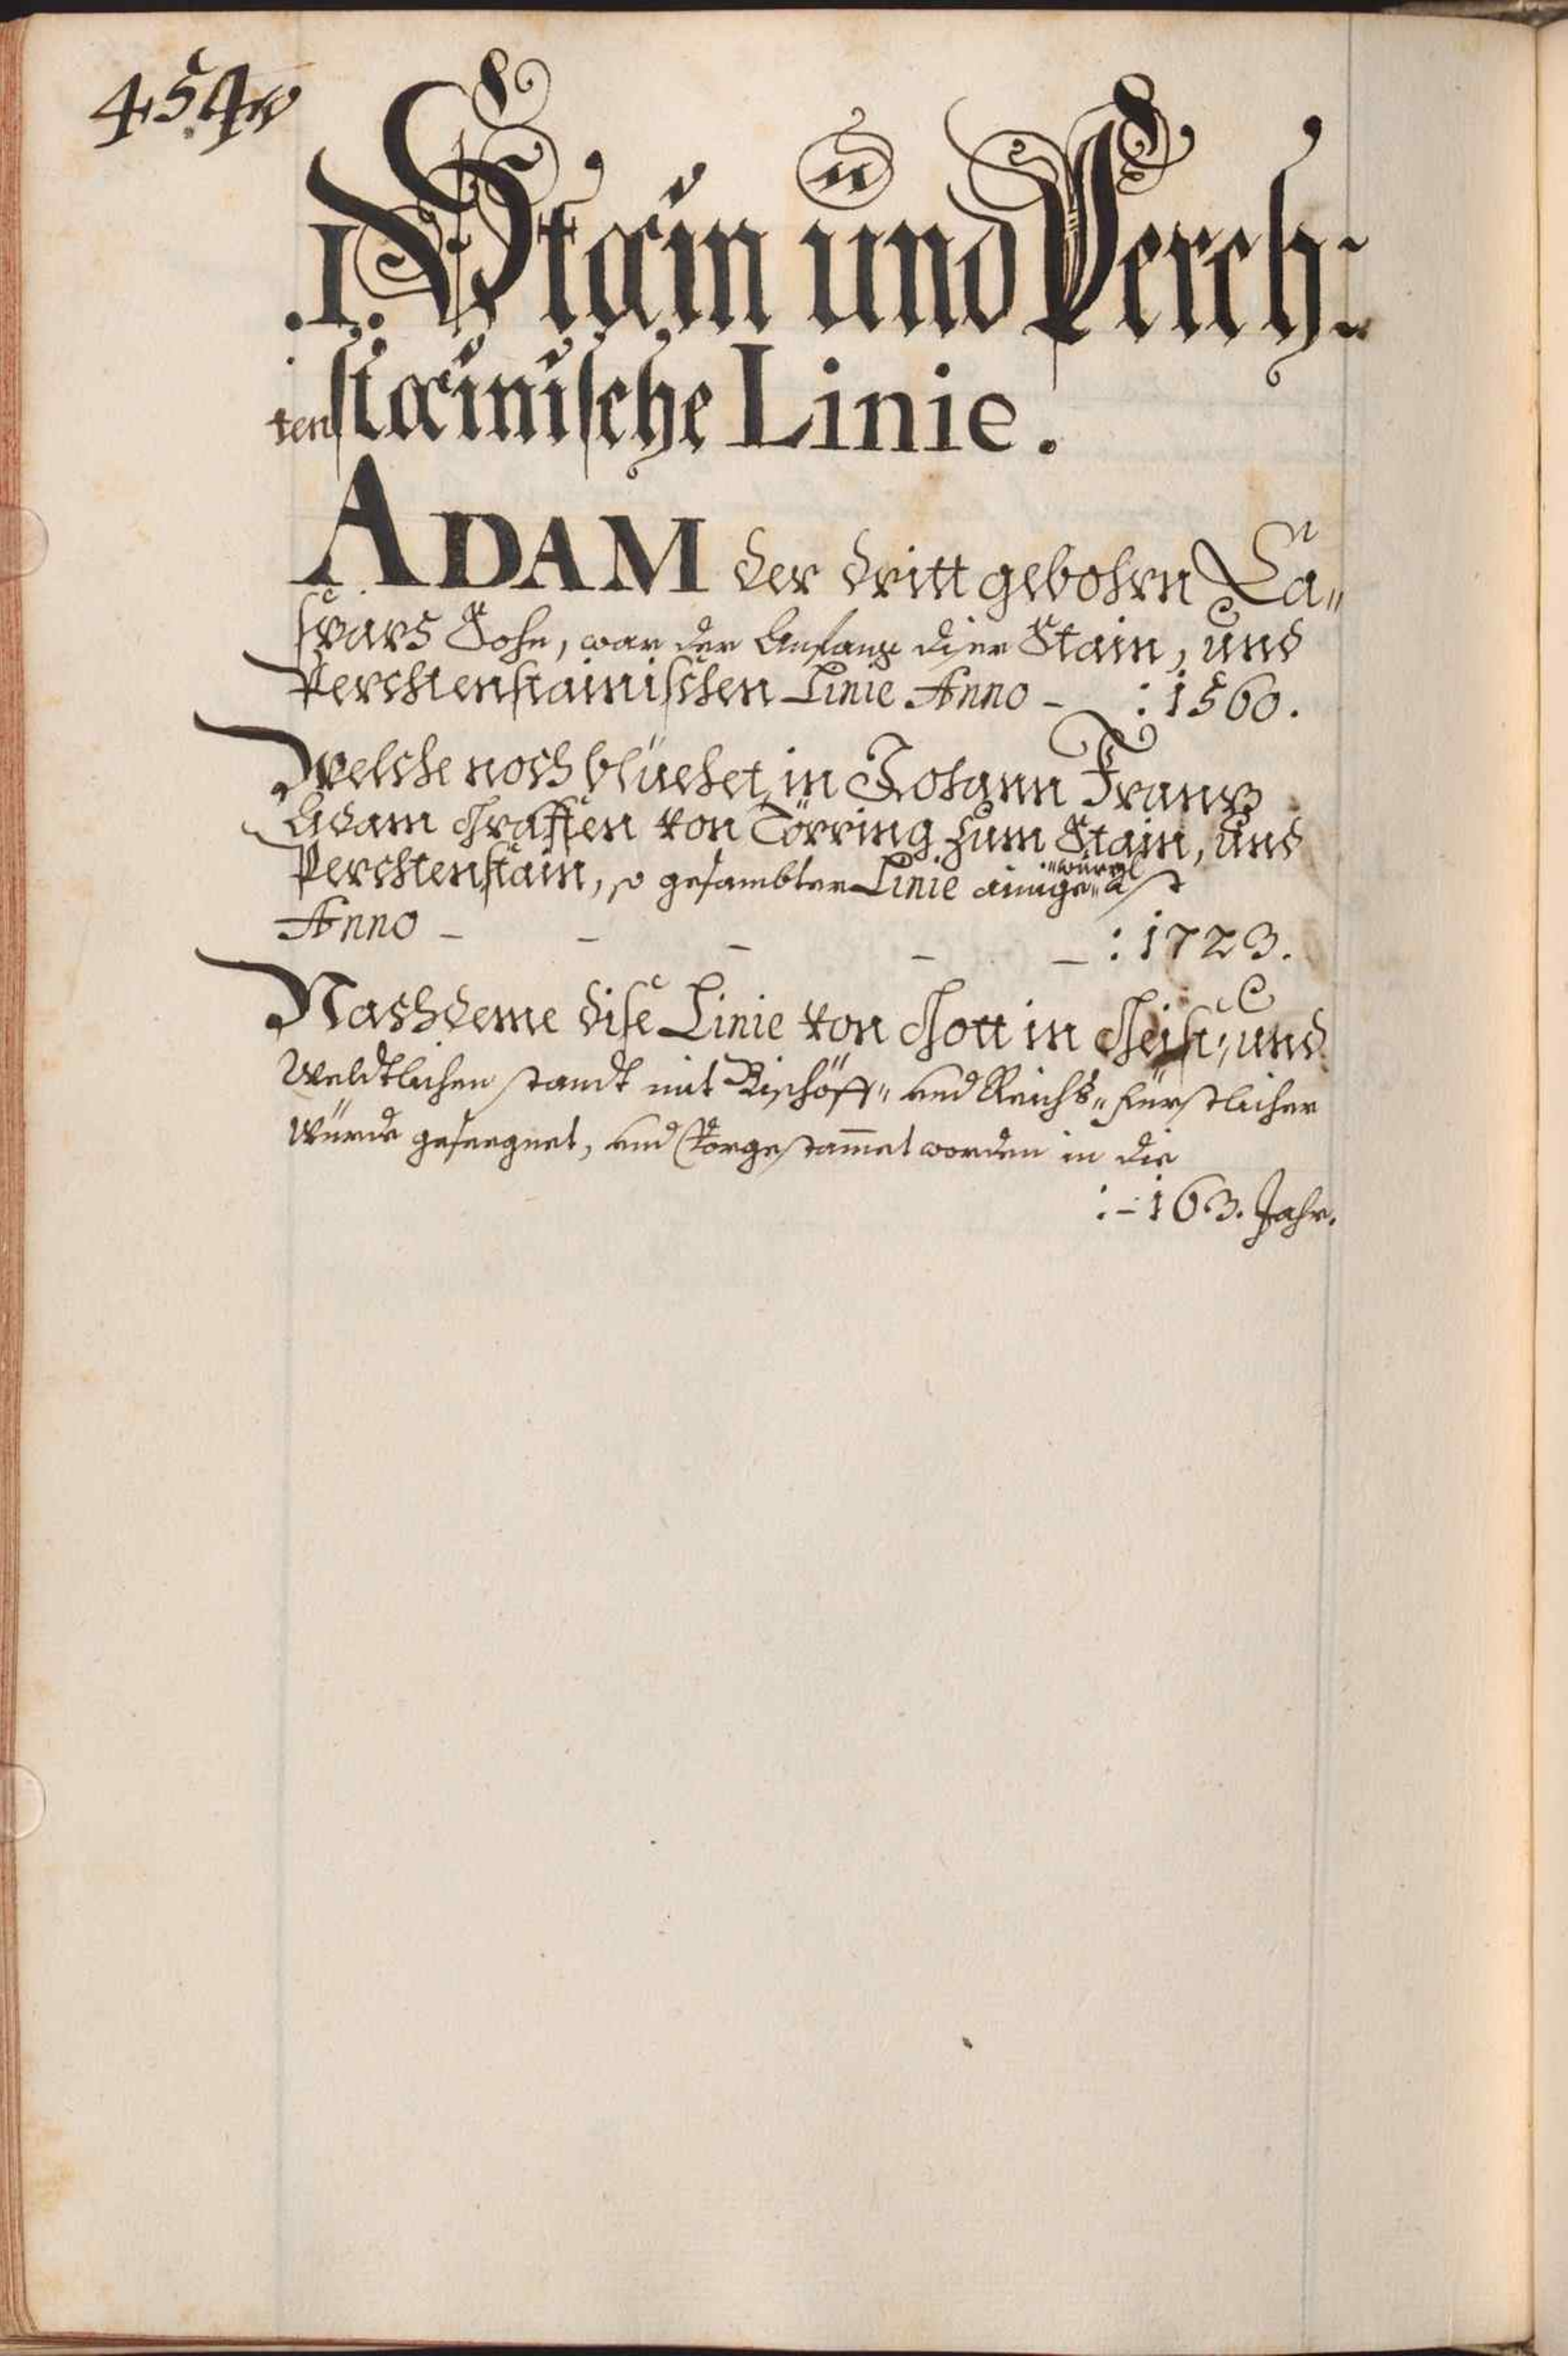 454
.I. Stain und Perch:
tenstainische Linie.
ADAM der dritt gebohrn Ca„
spars Sohn, war der Anfang diser Stain, und
Perchtenstainischen Linie Anno – : 1560.
Welche noch blüehet in Johann Franz
Adam Graffen von Törring zum Stain, und
Perchtenstain, so gesambter Linie ainige
Anno – – – – – : 1723.
Nachdeme dise Linie von Gott in Geist: und
Weldtlichen standt mit Bischöff„ und Reichs„ fürstlicher
Würde geseegnet, und Vorgestammet worden in die
: – 163. Jahr.